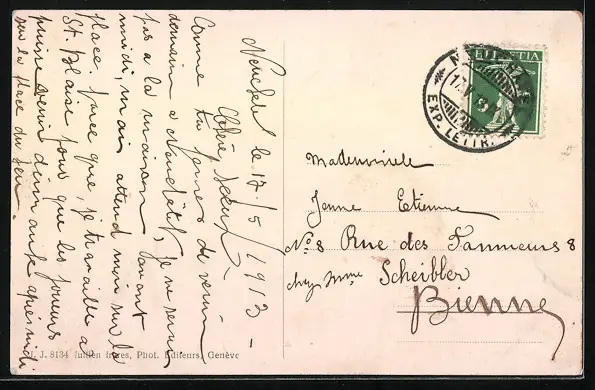 Neuchtel le 17/5/1913 –
Chère sœur
Comme tu penses de venir
demain a Neuchâtel, je ne serai
pas a la maison avant
midi, mais attend moi sur la
place. parce que, je travaille a
St. Blaise pour que les joueurs
puisse venir dimanche après-midi
sur la place du jeu.
J. J. 8134 Jullien frères, Phot. Editeurs, Genève
HELVETIA
EXP. LETTR.
Mademoiselle
Jenne Etienne
No 8 Rue des Tanneurs 8
chez Mme Scheibler
Bienne